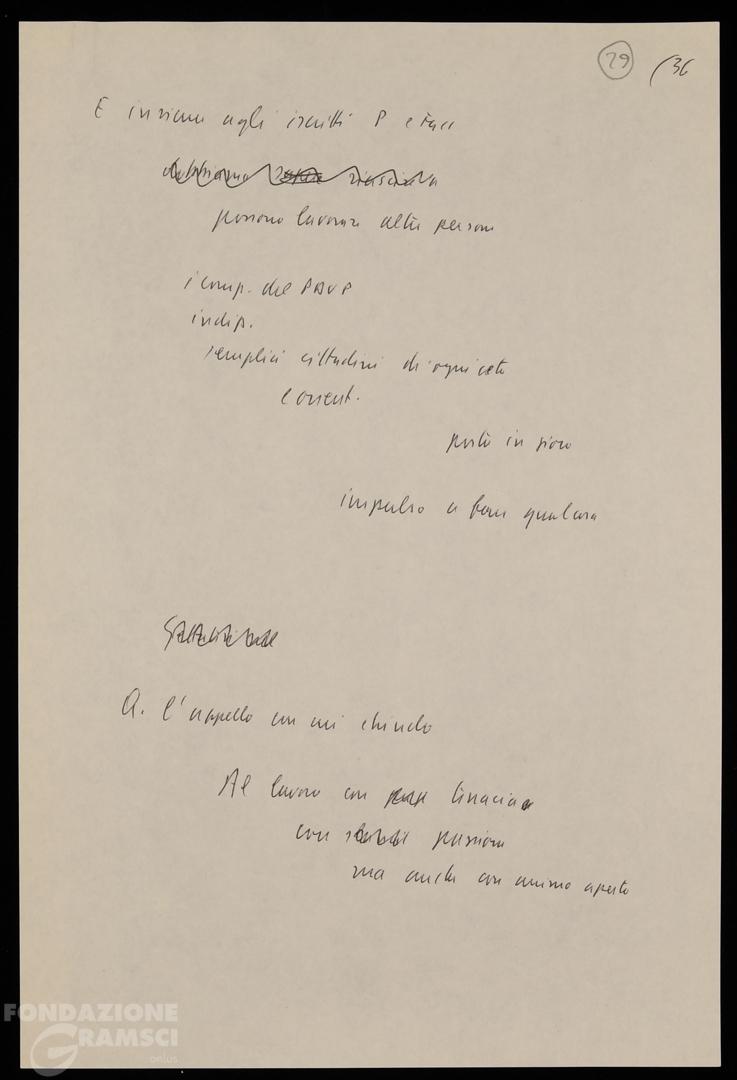 29 (36
E insieme agli iscritti P e FGCI
dobbiamo
possono lavorare altre persone
i comp. del PdUP
indip.
semplici cittadini di ogni ceto
e orient.
porto in giro
impulso a fare qualcosa
A. l'appello con cui chiudo
Al lavoro con tenacia
con passione
ma anche con animo aperto
FONDAZIONE
GRAMSCI
onlus